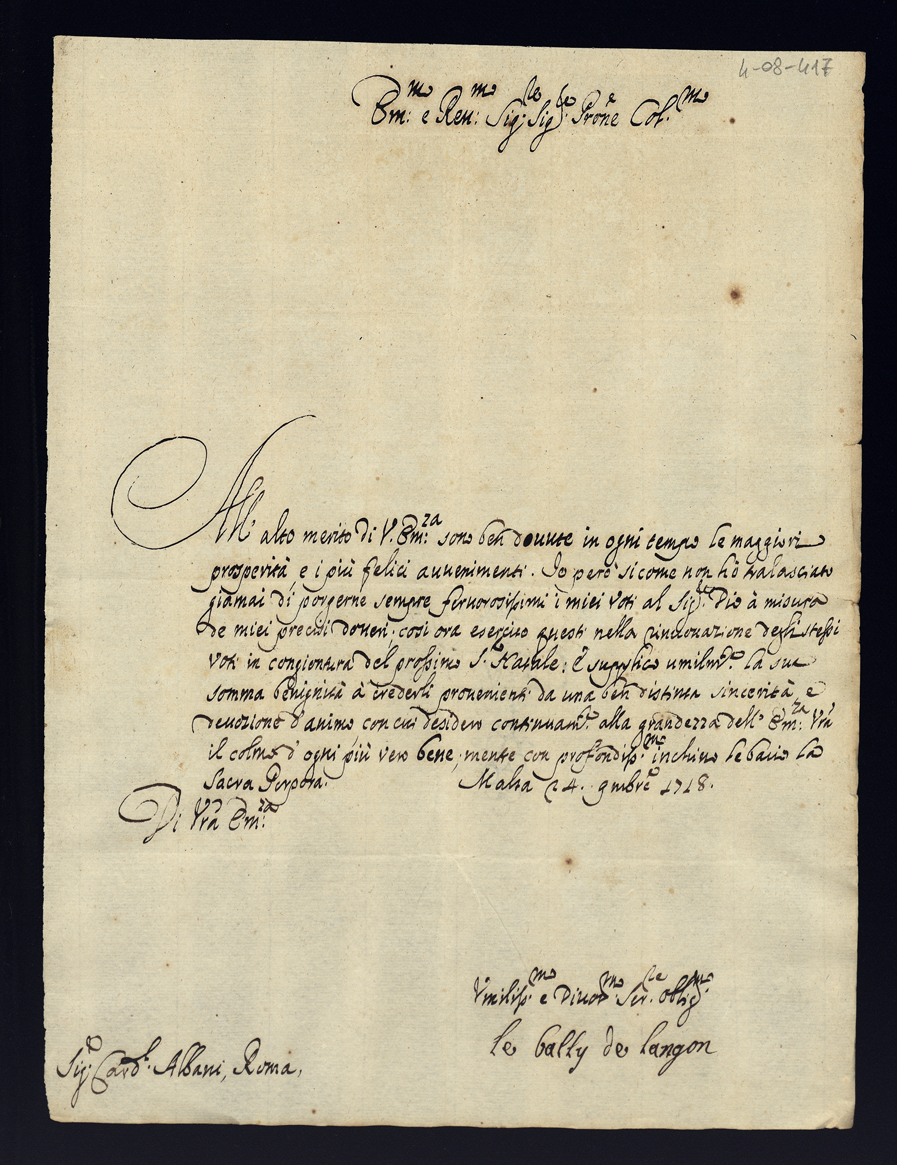 4-08-417
Em:mo e Reu:mo Sig:re Sig:re Prone Col.mo
All alto merito di V. Em:za sono ben douute in ogni tempo le maggiori
prosperità e i più felici auuenimenti. Io però sicome non hò tralasciato
giamai di porgerne sempre feruorosissimi i miei voti al Sig:re Dio à misura
de miei precisi doueri, così ora esercito questi nella rinouazione degli stessi
voti in congiontura del prossimo S.to Natale; E supplico umilm.te la sua
somma benignità à crederli prouenienti da una ben distinta sincerità, e
deuozione d'animo con cui desidero continuam.te alla grandezza dell' Em:za Vra
il colmo d'ogni più vero bene, mentre con profondiss.mo inchino le bacio la
Sacra Porpora. Malta 24. 9mbre 1718.
Di Vra Em:za
Vmiliss.mo e Diuot.mo Ser.re oblig.mo
le bally de langon
Sig:r Card.l Albani, Roma,